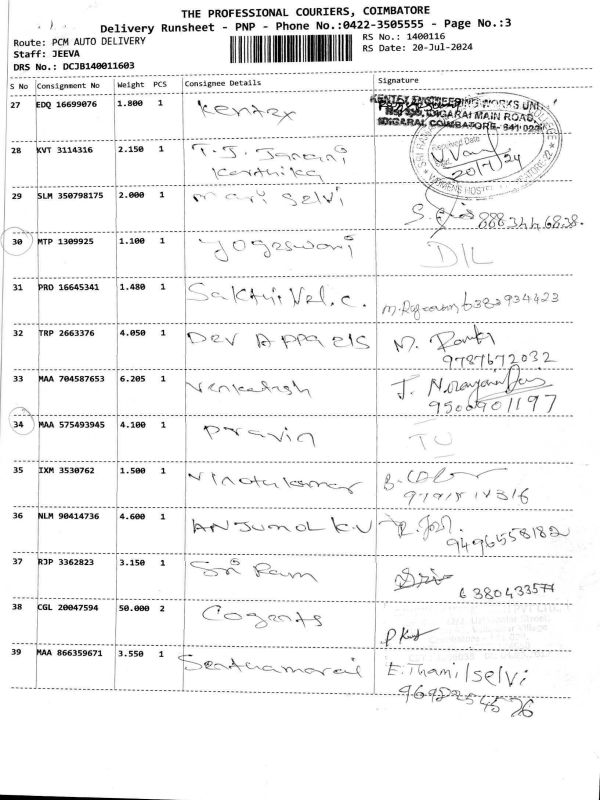 THE PROFESSIONAL COURIERS, COIMBATORE
Delivery Runsheet - PNP - Phone No.:0422-3505555 - Page No.:3
Route: PCM AUTO DELIVERY
RS No.: 1400116
Staff: JEEVA
RS Date: 20-Jul-2024
DRS No.: DCJB140011603
S No Consignment No Weight PCS Consignee Details Signature
27 EDQ 16699076 1.800 1 Kentex
KENTEX ENGINEERING WORKS UNIT
IDIGARAI MAIN ROAD,
IDIGARAI, COIMBATORE- 641 022
28 KVT 3114316 2.150 1 T. J. Janani
Karthika
20/7/24
29 SLM 350798175 2.000 1 Mari Selvi
30 MTP 1309925 1.100 1 Yogeswari D/L
31 PRO 16645341 1.480 1 Sakthi Vel. C. 6383934423
32 TRP 2663376 4.050 1 Dev M.
9787672032
33 MAA 704587653 6.205 1 Venkatesh J.
9500901197
34 MAA 575493945 4.100 1 Pravin
35 IXM 3530762 1.500 1 Vinothkumar
36 NLM 90414736 4.600 1 ANJUMOL K.V
9496558182
37 RJP 3362823 3.150 1 Sri Ram Sri
6380433577
38 CGL 20047594 50.000 2 Cogents
39 MAA 866359671 3.550 1 E. Thamilselvi